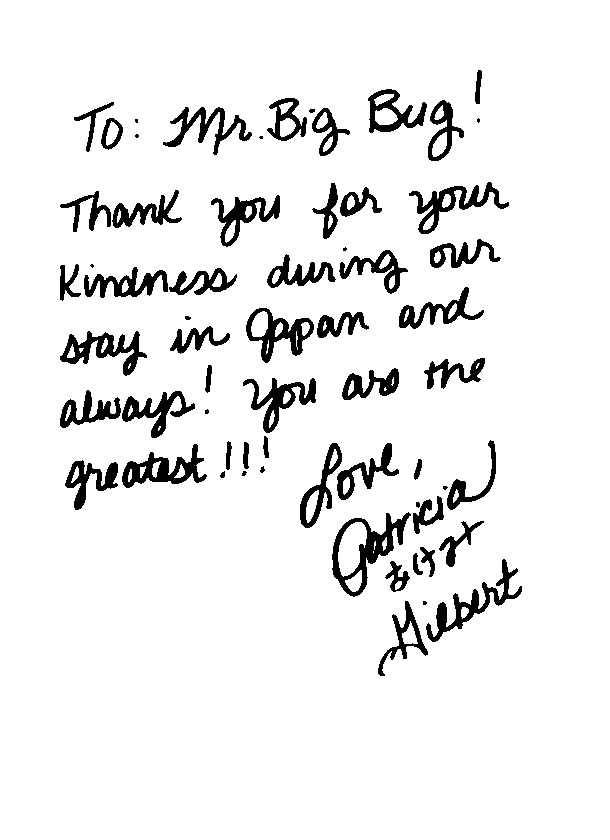 To: Mr. Big Bug!
Thank you for your
kindness during our
stay in Japan and
always! You are the
greatest!!!
Love,
Patricia
あけみ
Gilbert